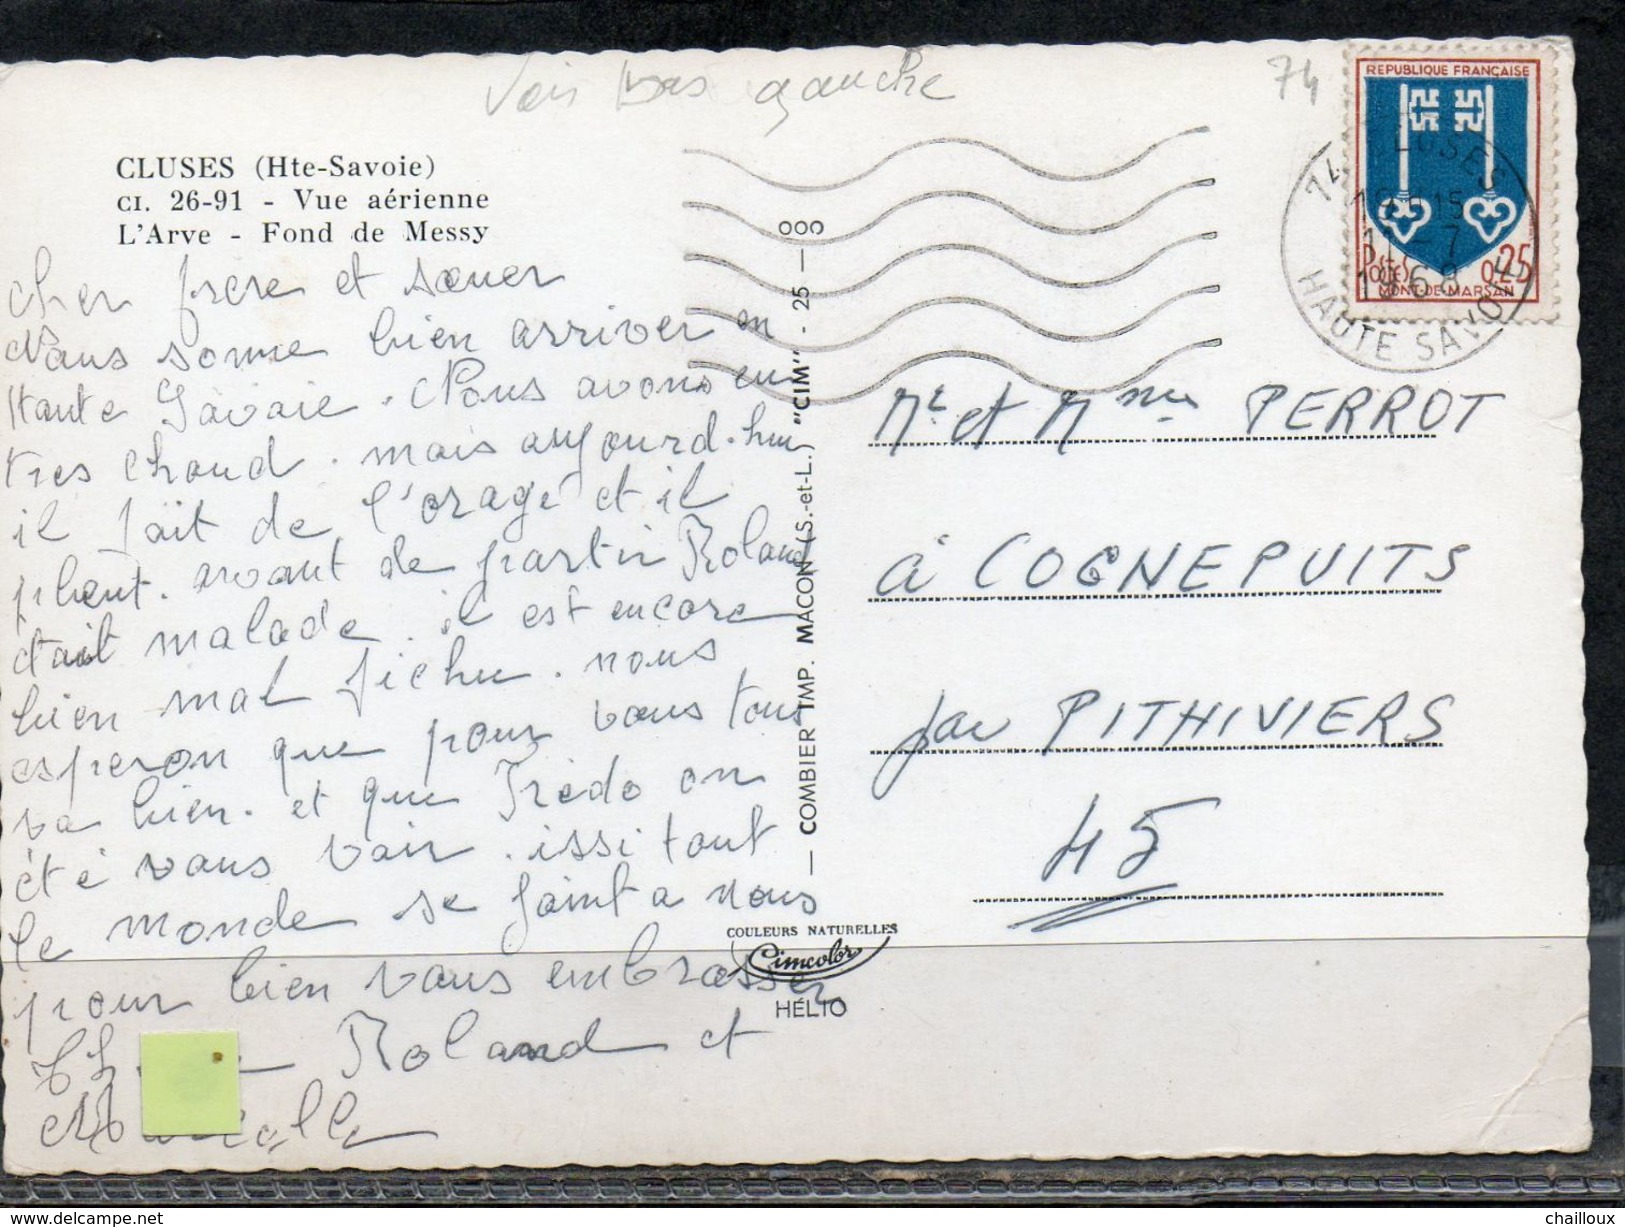 Voir bas gauche
74
CLUSES (Hte-Savoie)
CI. 26-91 - Vue aérienne
L'Arve - Fond de Messy
cher frere et sœuer
Nous somme bien arriver en
Haute Savoie. Nous avons eu
tres chaud. mais aujourd.hui
il fait de l'orage et il
pleut. avant de partir Roland
était malade. il est encore
bien mal fichu. nous
esperon que pour vous tous
va bien. et que Frédo on
été vous voir. issi tout
le monde se joint a nous
pour bien vous embrasser
Roland et
COMBIER IMP. MACON (S.-et-L.) "CIM" - 25 - 000
COULEURS NATURELLES
Cimcolor
HÉLIO
REPUBLIQUE FRANÇAISE
POSTES 0,25
MONT-DE-MARSAN
74 CLUSES
19H15
11-7
1968
HAUTE SAVOIE
Mr et Mme PERROT
à COGNEPUITS
par PITHIVIERS
45
www.delcampe.net
chailloux